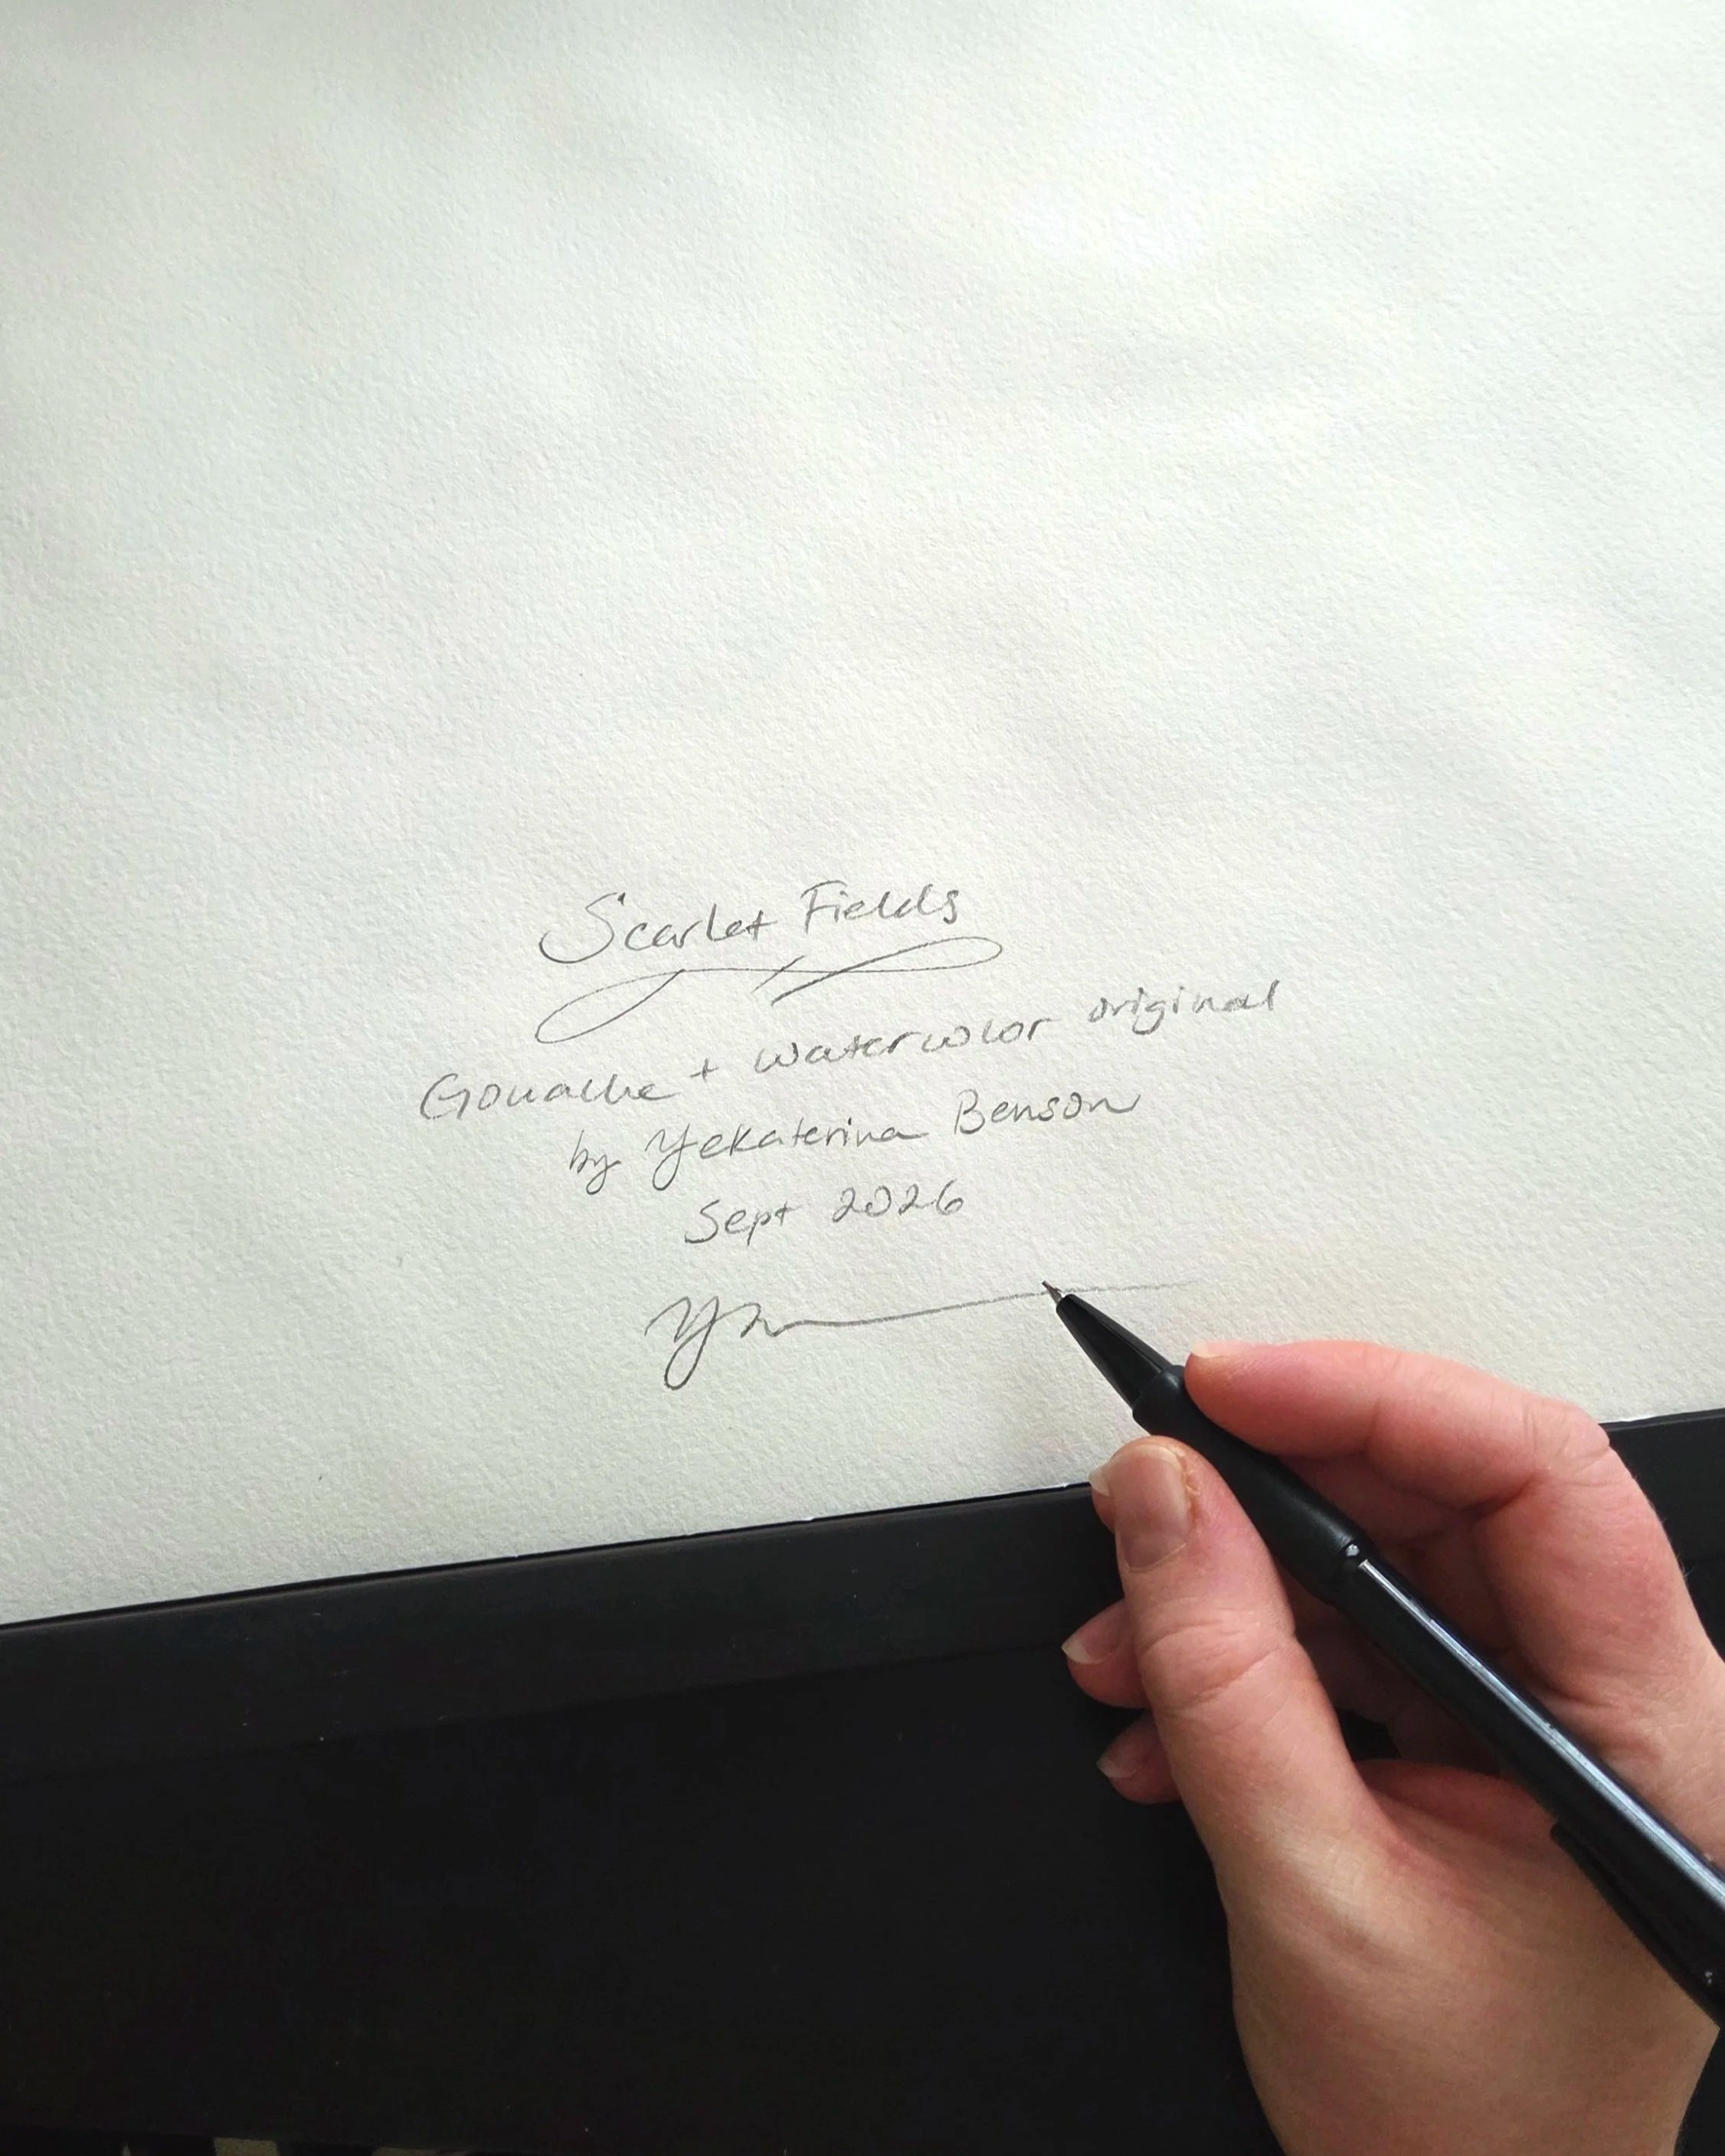 Scarlet Fields
Gouache + watercolor original
by Yekaterina Benson
Sept 2026